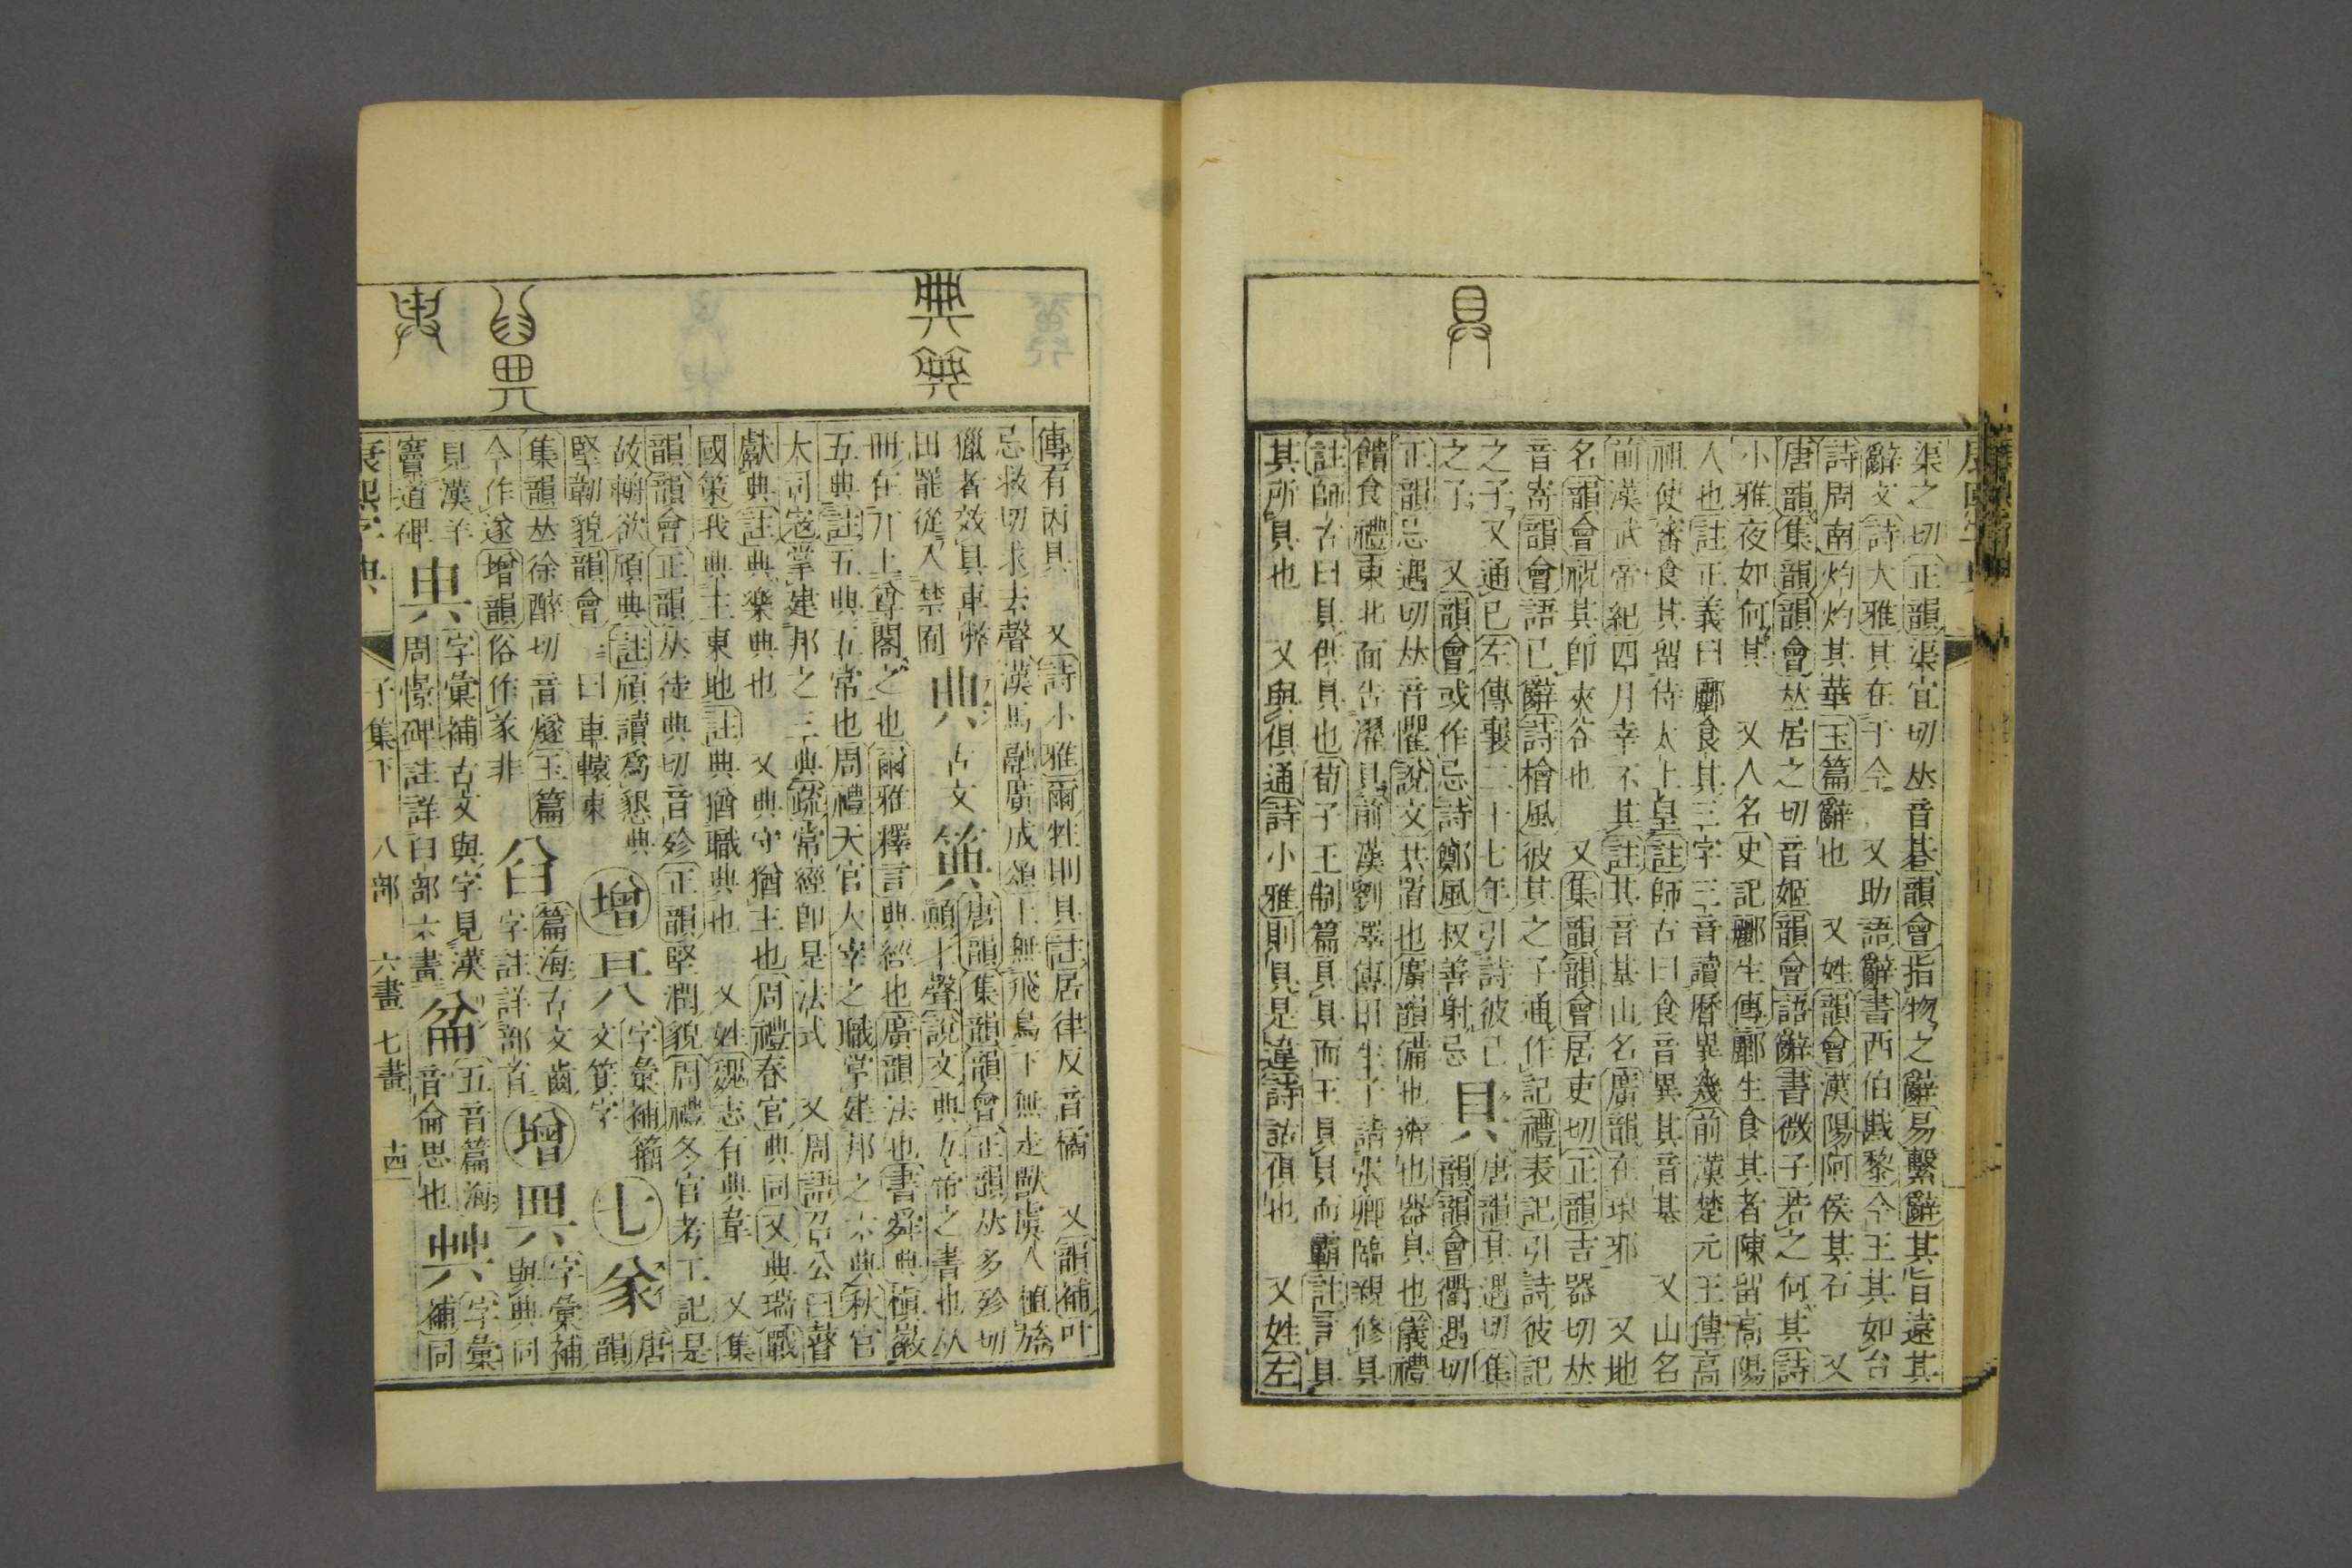 渠之切正韻渠宜切𠀤音碁韻會指物之辭易繫辭其旨遠其
辭文詩大雅其在于今 又助語辭書西伯戡黎今王其如台
詩周南灼灼其華玉篇辭也 又姓韻會漢陽阿侯其石 又
唐韻集韻韻會𠀤居之切音姬韻會語辭書微子若之何其詩
小雅夜如何其 又人名史記酈生傳酈生食其者陳留高陽
人也註正義曰酈食其三字三音讀曆異幾前漢楚元王傳高
祖使審食其留待太上皇註師古曰食音異其音基 又山名
前漢武帝紀四月幸不其註其音基山名廣韻在琅邪 又地
名韻會祝其卽夾谷也 又集韻韻會居吏切正韻吉器切𠀤
音寄韻會語已辭詩檜風彼其之子通作記禮表記引詩彼記
之子又通已左傳襄二十七年引詩彼己
之子 又韻會或作忌詩鄭風叔善射忌
具
唐韻其遇切集
韻韻會衢遇切
正韻忌遇切𠀤音懼說文共置也廣韻備也辦也器具也儀禮
饋食禮東北面告濯具前漢劉澤傳田生子請張卿臨親修具
註師古曰具供具也荀子王制篇具具而王具具而霸註言具
其所具也 又與俱通詩小雅則具是違詩詁俱也 又姓左
傳有丙具 又詩小雅爾牲則具註居律反音橘 又韻補叶
忌救切求去聲漢馬融廣成頌上無飛鳥下無走獸虞人植旍
獵者效具車弊
田罷從入禁囿
典
古文
𥮏
唐韻集韻韻會正韻𠀤多殄切
顚上聲說文典五帝之書也从
冊在丌上尊閣之也爾雅釋言典經也廣韻法也書舜典愼徽
五典註五典五常也周禮天官大宰之職掌建邦之六典秋官
大司寇掌建邦之三典疏常經卽是法式 又周語召公曰瞽
獻典註典樂典也 又典守猶主也周禮春官典同又典瑞職
國策我典主東地註典猶職典也 又姓魏志有典韋 又集
韻韻會正韻𠀤徒典切音殄正韻堅潤貌周禮冬官考工記是
故輈欲頎典註頎讀爲懇典
堅韌貌韻會一曰車轅東
增
𠀠
字彙補籀
文箕字
七
㒸
唐
韻
集韻𠀤徐醉切音燧玉篇
今作遂增韻俗作㒸非
㕣
篇海古文齒
字註詳部首
增
𠔓
字彙補
與典同
見漢羊
竇道碑
𠔏
字彙補古文與字見漢
周憬碑註詳臼部六畫
㑫
五音篇海
音侖思也
𠔔
字彙
補同
康熙字典
子集下 八部 六畫 七畫 十四